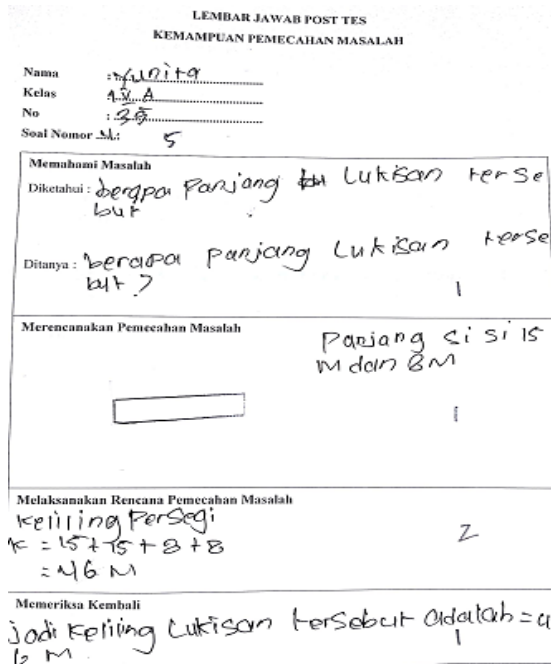 LEMBAR JAWAB POST TES
KEMAMPUAN PEMECAHAN MASALAH
Nama : Yunita
Kelas : IV A
No : 35
Soal Nomor : 5
Memahami Masalah
Diketahui : berapa Panjang Lukisan terse
but
Ditanya : berapa panjang Lukisan terse
but ?
1
Merencanakan Pemecahan Masalah
Panjang sisi 15
M dan 8M
1
Melaksanakan Rencana Pemecahan Masalah
Keliling Persegi
K = 15 + 15 + 8 + 8
= 46 M
2
Memeriksa Kembali
jadi Keliling Lukisan tersebut adalah = 4
6 M
1